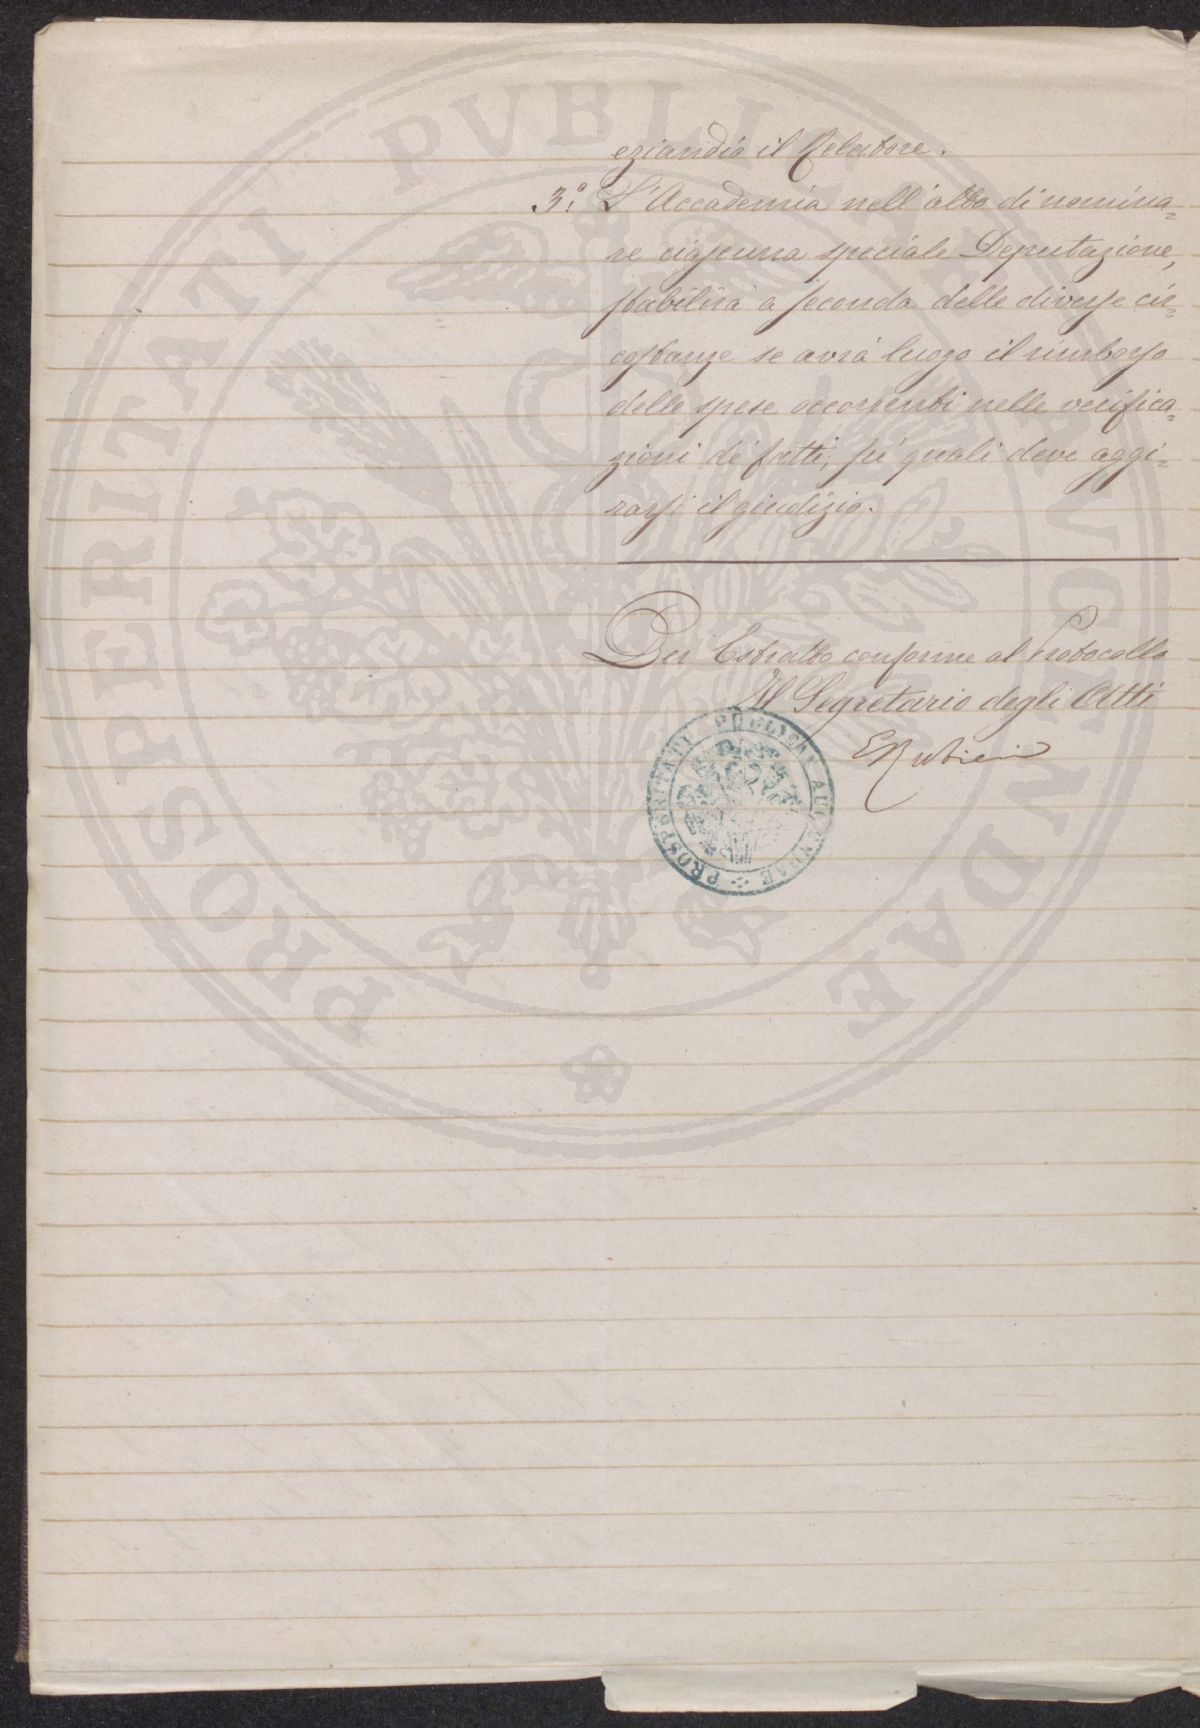 eziandio il Relatore.
3.° L'Accademia nell'atto di nomina=
re ciascuna speciale Deputazione,
stabilirà a seconda delle diverse cir=
costanze se avrà luogo il rimborso
delle spese occorrenti nelle verifica=
zioni de' fatti, su' quali deve aggi=
rarsi il giudizio.
Per Estratto conforme al Protocollo
Il Segretario degli Atti
E Rubieri
PROSPERITATI PUBLICAE AUGENDAE
PROSPERITATI PVBLICAE AVGENDAE